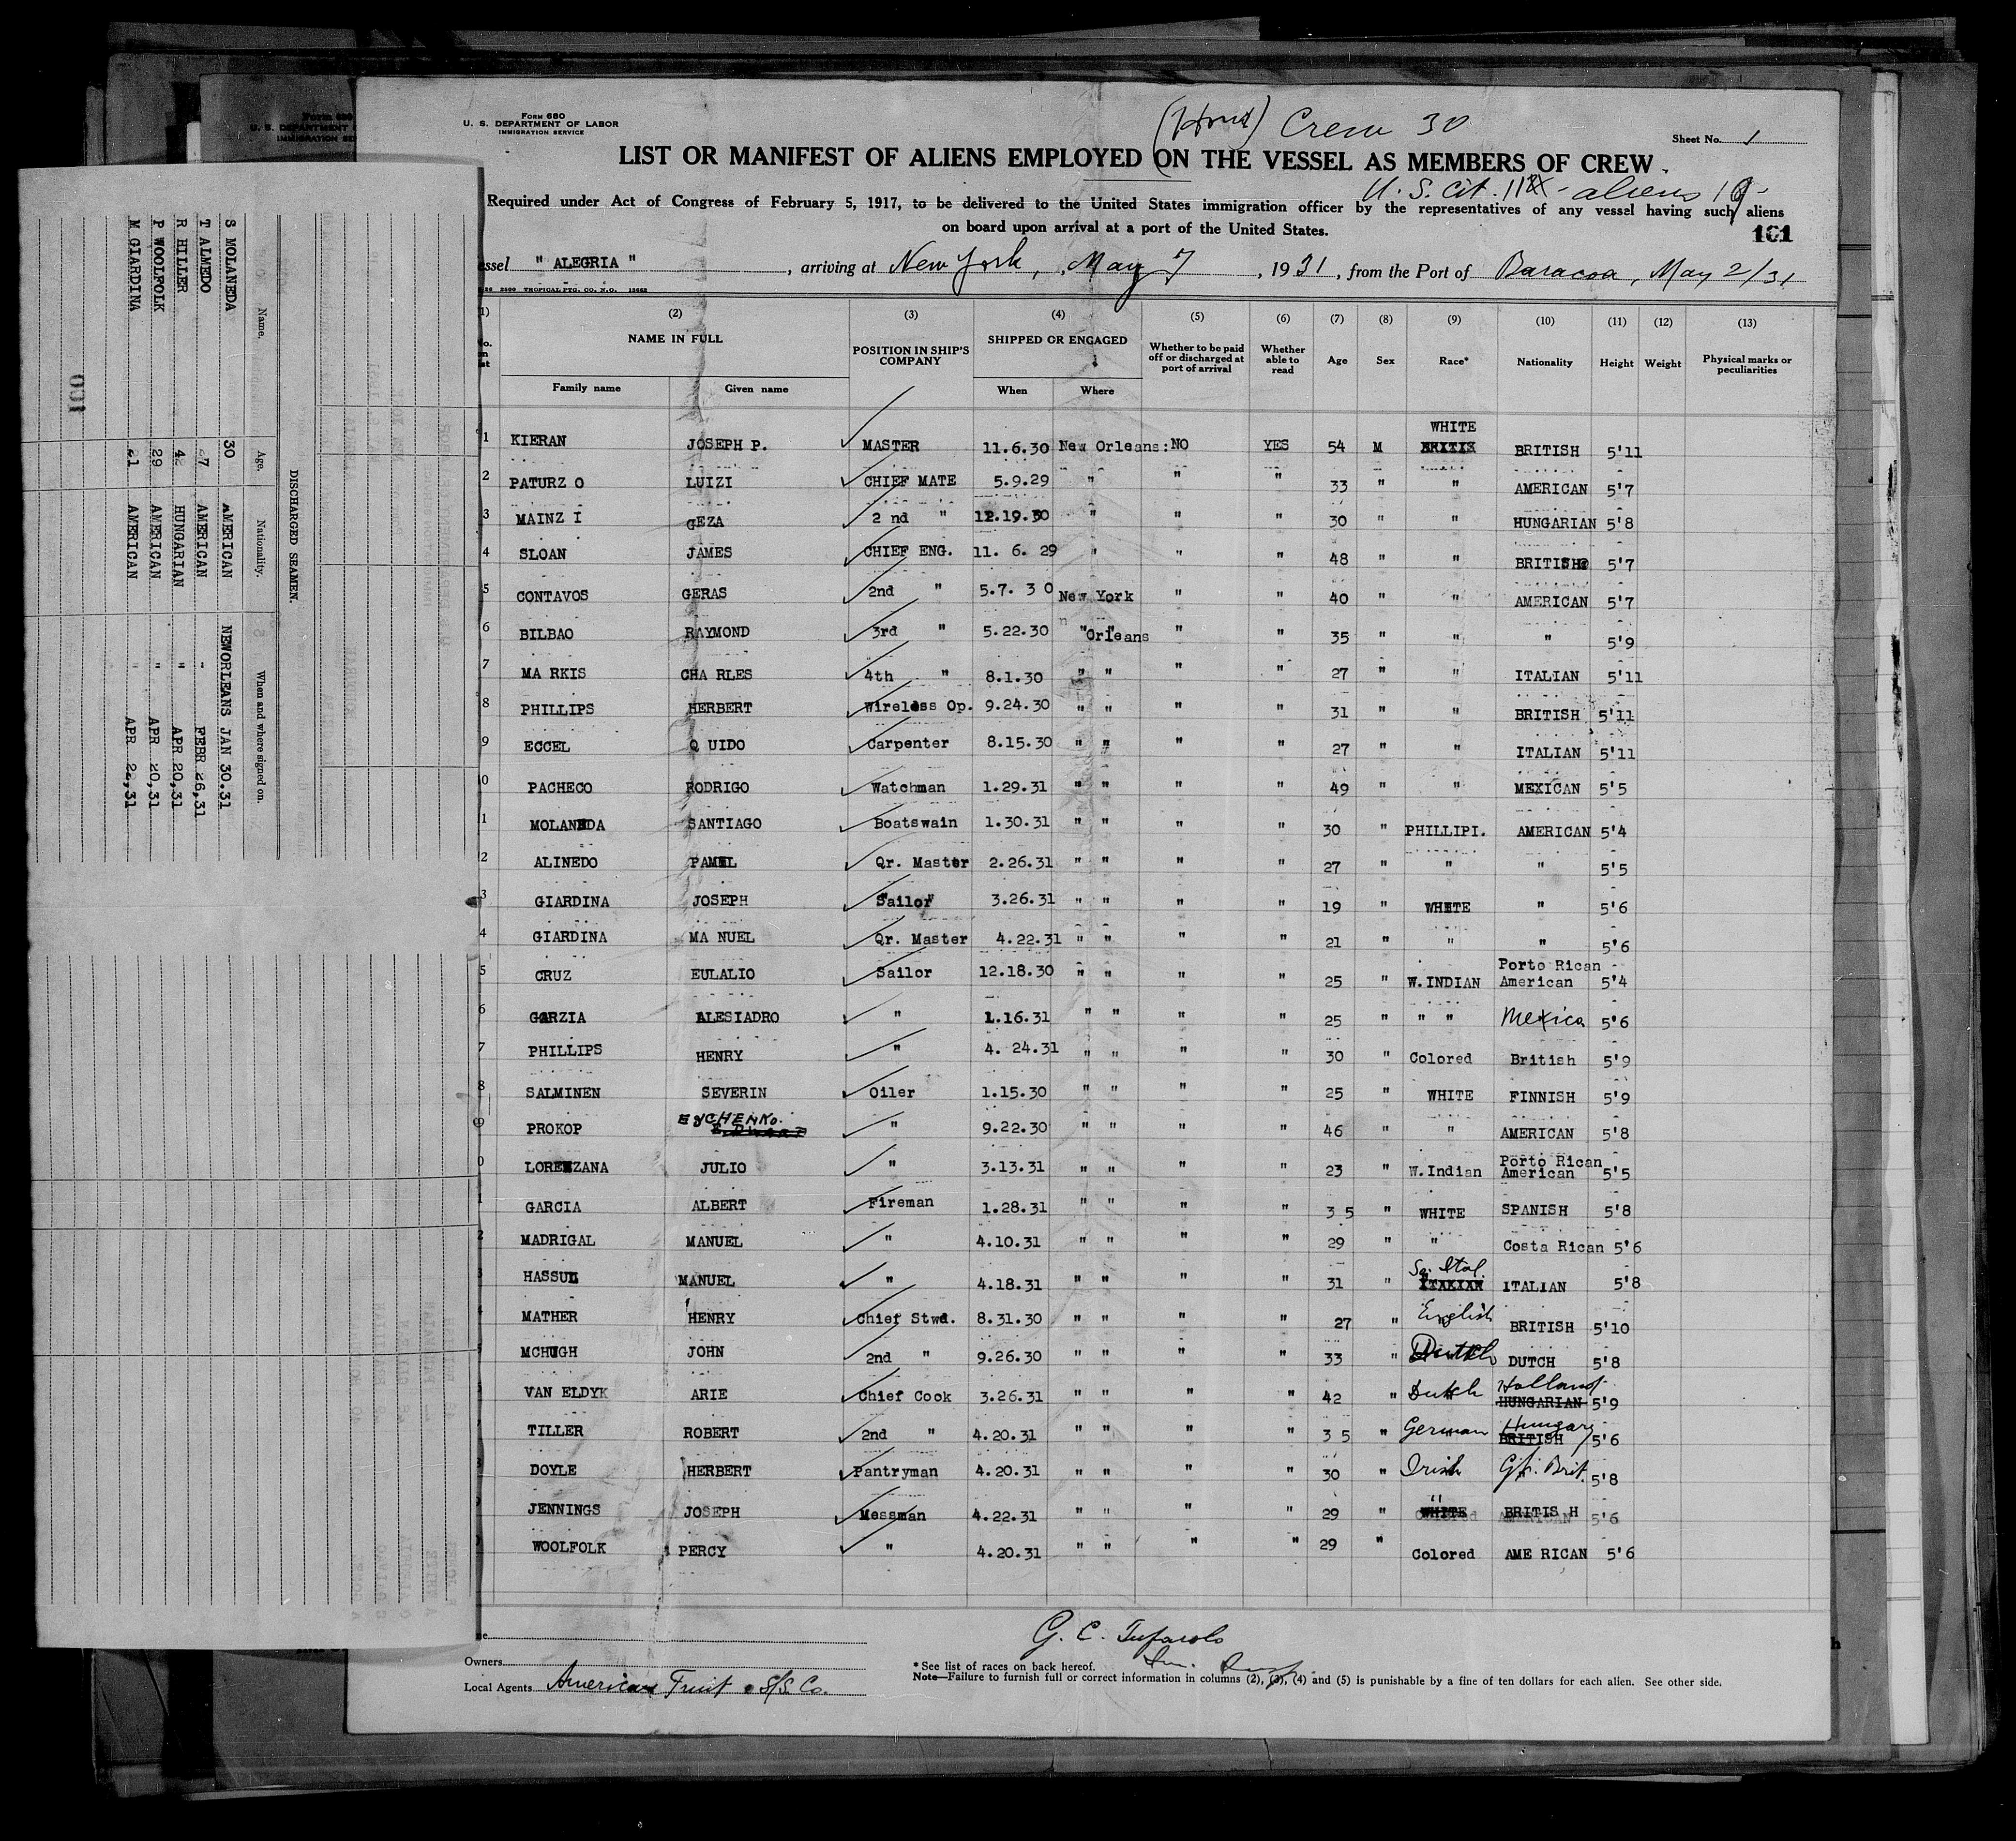 Form 680
U. S. DEPARTMENT OF LABOR
IMMIGRATION SERVICE
Crew 30
Sheet No. 1
LIST OR MANIFEST OF ALIENS EMPLOYED ON THE VESSEL AS MEMBERS OF CREW
U. S. Cit. 11 - aliens 19
Required under Act of Congress of February 5, 1917, to be delivered to the United States immigration officer by the representatives of any vessel having such aliens
on board upon arrival at a port of the United States.
101
essel " ALEGRIA ", arriving at New York, May 7, 1931, from the Port of Baracoa, May 2/31
(2) (3) (4) (5) (6) (7) (8) (9) (10) (11) (12) (13)
NAME IN FULL POSITION IN SHIP'S COMPANY SHIPPED OR ENGAGED Whether to be paid off or discharged at port of arrival Whether able to read Age Sex Race* Nationality Height Weight Physical marks or peculiarities
Family name Given name When Where
WHITE
1 KIERAN JOSEPH P. MASTER 11.6.30 New Orleans: NO YES 54 M BRITISH 5'11
2 PATURZ O LUIZI CHIEF MATE 5.9.29 " " " 33 " " AMERICAN 5'7
3 MAINZ I GEZA 2 nd " 12.19.30 " " " 30 " " HUNGARIAN 5'8
4 SLOAN JAMES CHIEF ENG. 11. 6. 29 " " " 48 " " BRITISH 5'7
5 CONTAVOS GERAS 2nd " 5.7. 3 0 New York " " 40 " " AMERICAN 5'7
6 BILBAO RAYMOND 3rd " 5.22.30 " Orleans " " 35 " " " 5'9
7 MA RKIS CHA RLES 4th " 8.1.30 " " " " 27 " " ITALIAN 5'11
8 PHILLIPS HERBERT Wireless Op. 9.24.30 " " " " 31 " " BRITISH 5'11
9 ECCEL Q UIDO Carpenter 8.15.30 " " " " 27 " " ITALIAN 5'11
0 PACHECO RODRIGO Watchman 1.29.31 " " " " 49 " " MEXICAN 5'5
1 MOLANEDA SANTIAGO Boatswain 1.30.31 " " " " 30 " PHILLIPI. AMERICAN 5'4
2 ALINEDO Qr. Master 2.26.31 " " " " 27 " " " 5'5
3 GIARDINA JOSEPH Sailor 3.26.31 " " " " 19 " WHITE " 5'6
4 GIARDINA MA NUEL Qr. Master 4.22.31 " " " " 21 " " " 5'6
5 CRUZ EULALIO Sailor 12.18.30 " " " " 25 " W.INDIAN Porto Rican American 5'4
6 GARZIA ALESIADRO " 1.16.31 " " " " 25 " " " Mexico 5'6
7 PHILLIPS HENRY " 4. 24.31 " " " " 30 " Colored British 5'9
8 SALMINEN SEVERIN Oiler 1.15.30 " " " " 25 " WHITE FINNISH 5'9
9 PROKOP EyCHENKo. " 9.22.30 " " " " 46 " " AMERICAN 5'8
0 LORENZANA JULIO " 3.13.31 " " " " 23 " W.Indian Porto Rican American 5'5
1 GARCIA ALBERT Fireman 1.28.31 " " " " 3 5 " WHITE SPANISH 5'8
2 MADRIGAL MANUEL " 4.10.31 " " " " 29 " " Costa Rican 5'6
HASSUL MANUEL " 4.18.31 " " " " 31 " So. Ital. ITALIAN ITALIAN 5'8
MATHER HENRY Chief Stwd. 8.31.30 " " " " 27 " English BRITISH 5'10
MCHUGH JOHN 2nd " 9.26.30 " " " " 33 " Dutch DUTCH 5'8
VAN ELDYK ARIE Chief Cook 3.26.31 " " " " 42 " Dutch Holland HUNGARIAN 5'9
TILLER ROBERT 2nd " 4.20.31 " " " " 3 5 " German Hungary BRITISH 5'6
DOYLE HERBERT Pantryman 4.20.31 " " " " 30 " Irish Gt. Brit. 5'8
JENNINGS JOSEPH Messman 4.22.31 " " " " 29 " " WHITE BRITIS H 5'6
WOOLFOLK PERCY " 4.20.31 " " " " 29 " Colored AME RICAN 5'6
Owners
Local Agents American Fruit S/S Co.
*See list of races on back hereof.
Note—Failure to furnish full or correct information in columns (2), (3), (4) and (5) is punishable by a fine of ten dollars for each alien. See other side.
DISCHARGED SEAMEN.
Name. Age. Nationality. When and where signed on.
S MOLANEDA 30 AMERICAN NEWORLEANS JAN 30.31
T ALMEDO 27 AMERICAN " FEBR 26,31
R HILLER 42 HUNGARIAN " APR 20,31
P WOOLFOLK 29 AMERICAN " APR 20,31
M GIARDINA 21 AMERICAN " APR 22,31
100